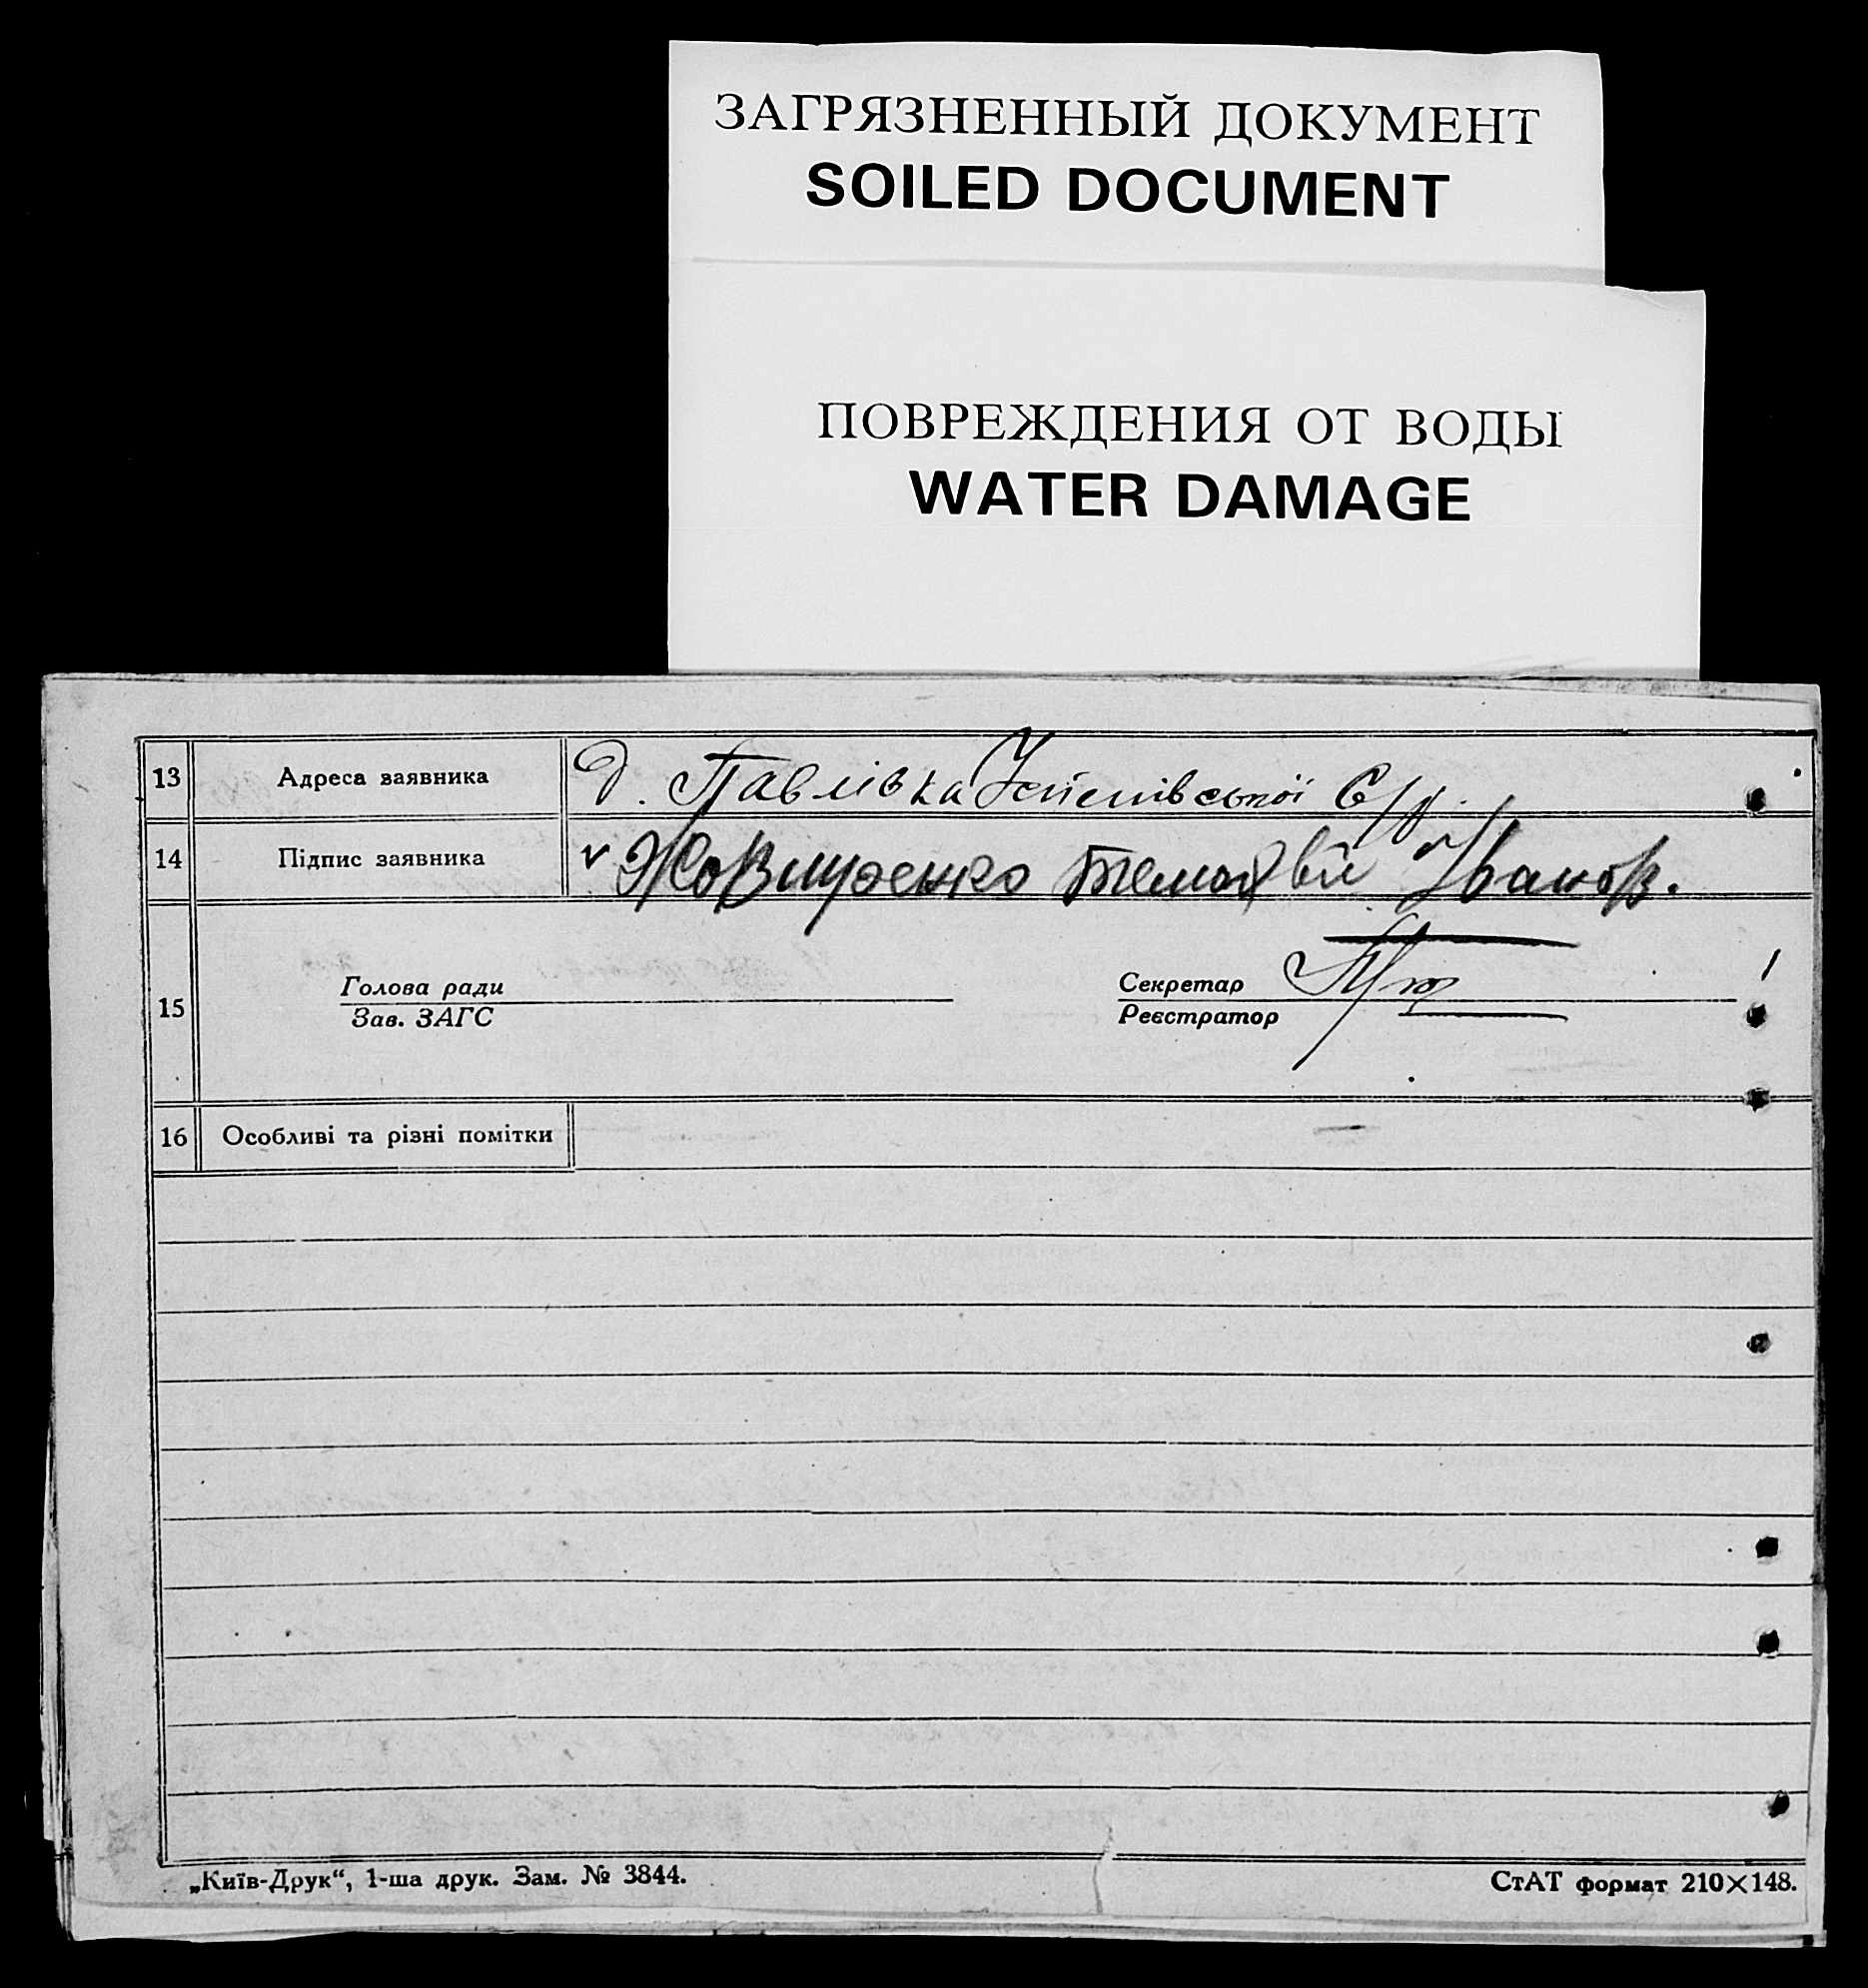 ЗАГРЯЗНЕННЫЙ ДОКУМЕНТ
SOILED DOCUMENT
ПОВРЕЖДЕНИЯ ОТ ВОДЫ
WATER DAMAGE
13 Адреса заявника д. Павлівка С/р.
14 Підпис заявника v Іванов.
15 Голова ради Секретар
Зав. ЗАГС Реєстратор
16 Особливі та різні помітки
„Київ-Друк“, 1-ша друк. Зам. № 3844. СтАТ формат 210×148.